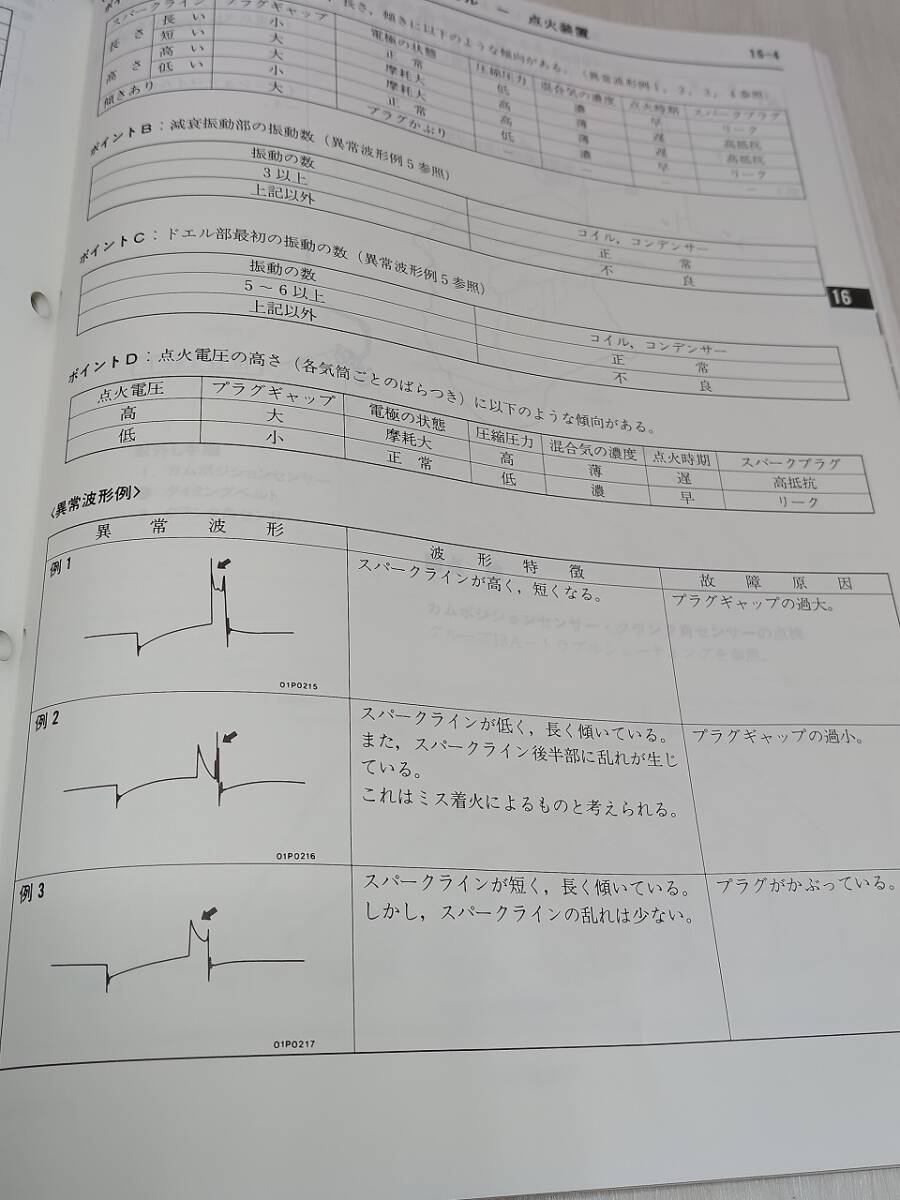 ル － 点火装置
16-4
長さ，傾きに以下のような傾向がある。（異常波形例1，2，3，4参照）
スパークライン プラグギャップ 電極の状態 圧縮圧力 混合気の濃度 点火時期 スパークプラグ
長さ 長い 小 正常 低 濃 早 リーク
短い 大 摩耗大 高 薄 遅 高抵抗
高さ 高い 大 摩耗大 高 薄 遅 高抵抗
低い 小 正常 低 濃 早 リーク
傾きあり 大 プラグかぶり － － － －
ポイントB：減衰振動部の振動数（異常波形例5参照）
振動の数 コイル，コンデンサー
3以上 正常
上記以外 不良
16
ポイントC：ドエル部最初の振動の数（異常波形例5参照）
振動の数 コイル，コンデンサー
5～6以上 正常
上記以外 不良
ポイントD：点火電圧の高さ（各気筒ごとのばらつき）に以下のような傾向がある。
点火電圧 プラグギャップ 電極の状態 圧縮圧力 混合気の濃度 点火時期 スパークプラグ
高 大 摩耗大 高 薄 遅 高抵抗
低 小 正常 低 濃 早 リーク
〈異常波形例〉
異常波形 波形特徴 故障原因
例1
スパークラインが高く，短くなる。
プラグギャップの過大。
01P0215
例2
スパークラインが低く，長く傾いている。
また，スパークライン後半部に乱れが生じ
ている。
これはミス着火によるものと考えられる。
プラグギャップの過小。
01P0216
例3
スパークラインが短く，長く傾いている。
しかし，スパークラインの乱れは少ない。
プラグがかぶっている。
01P0217